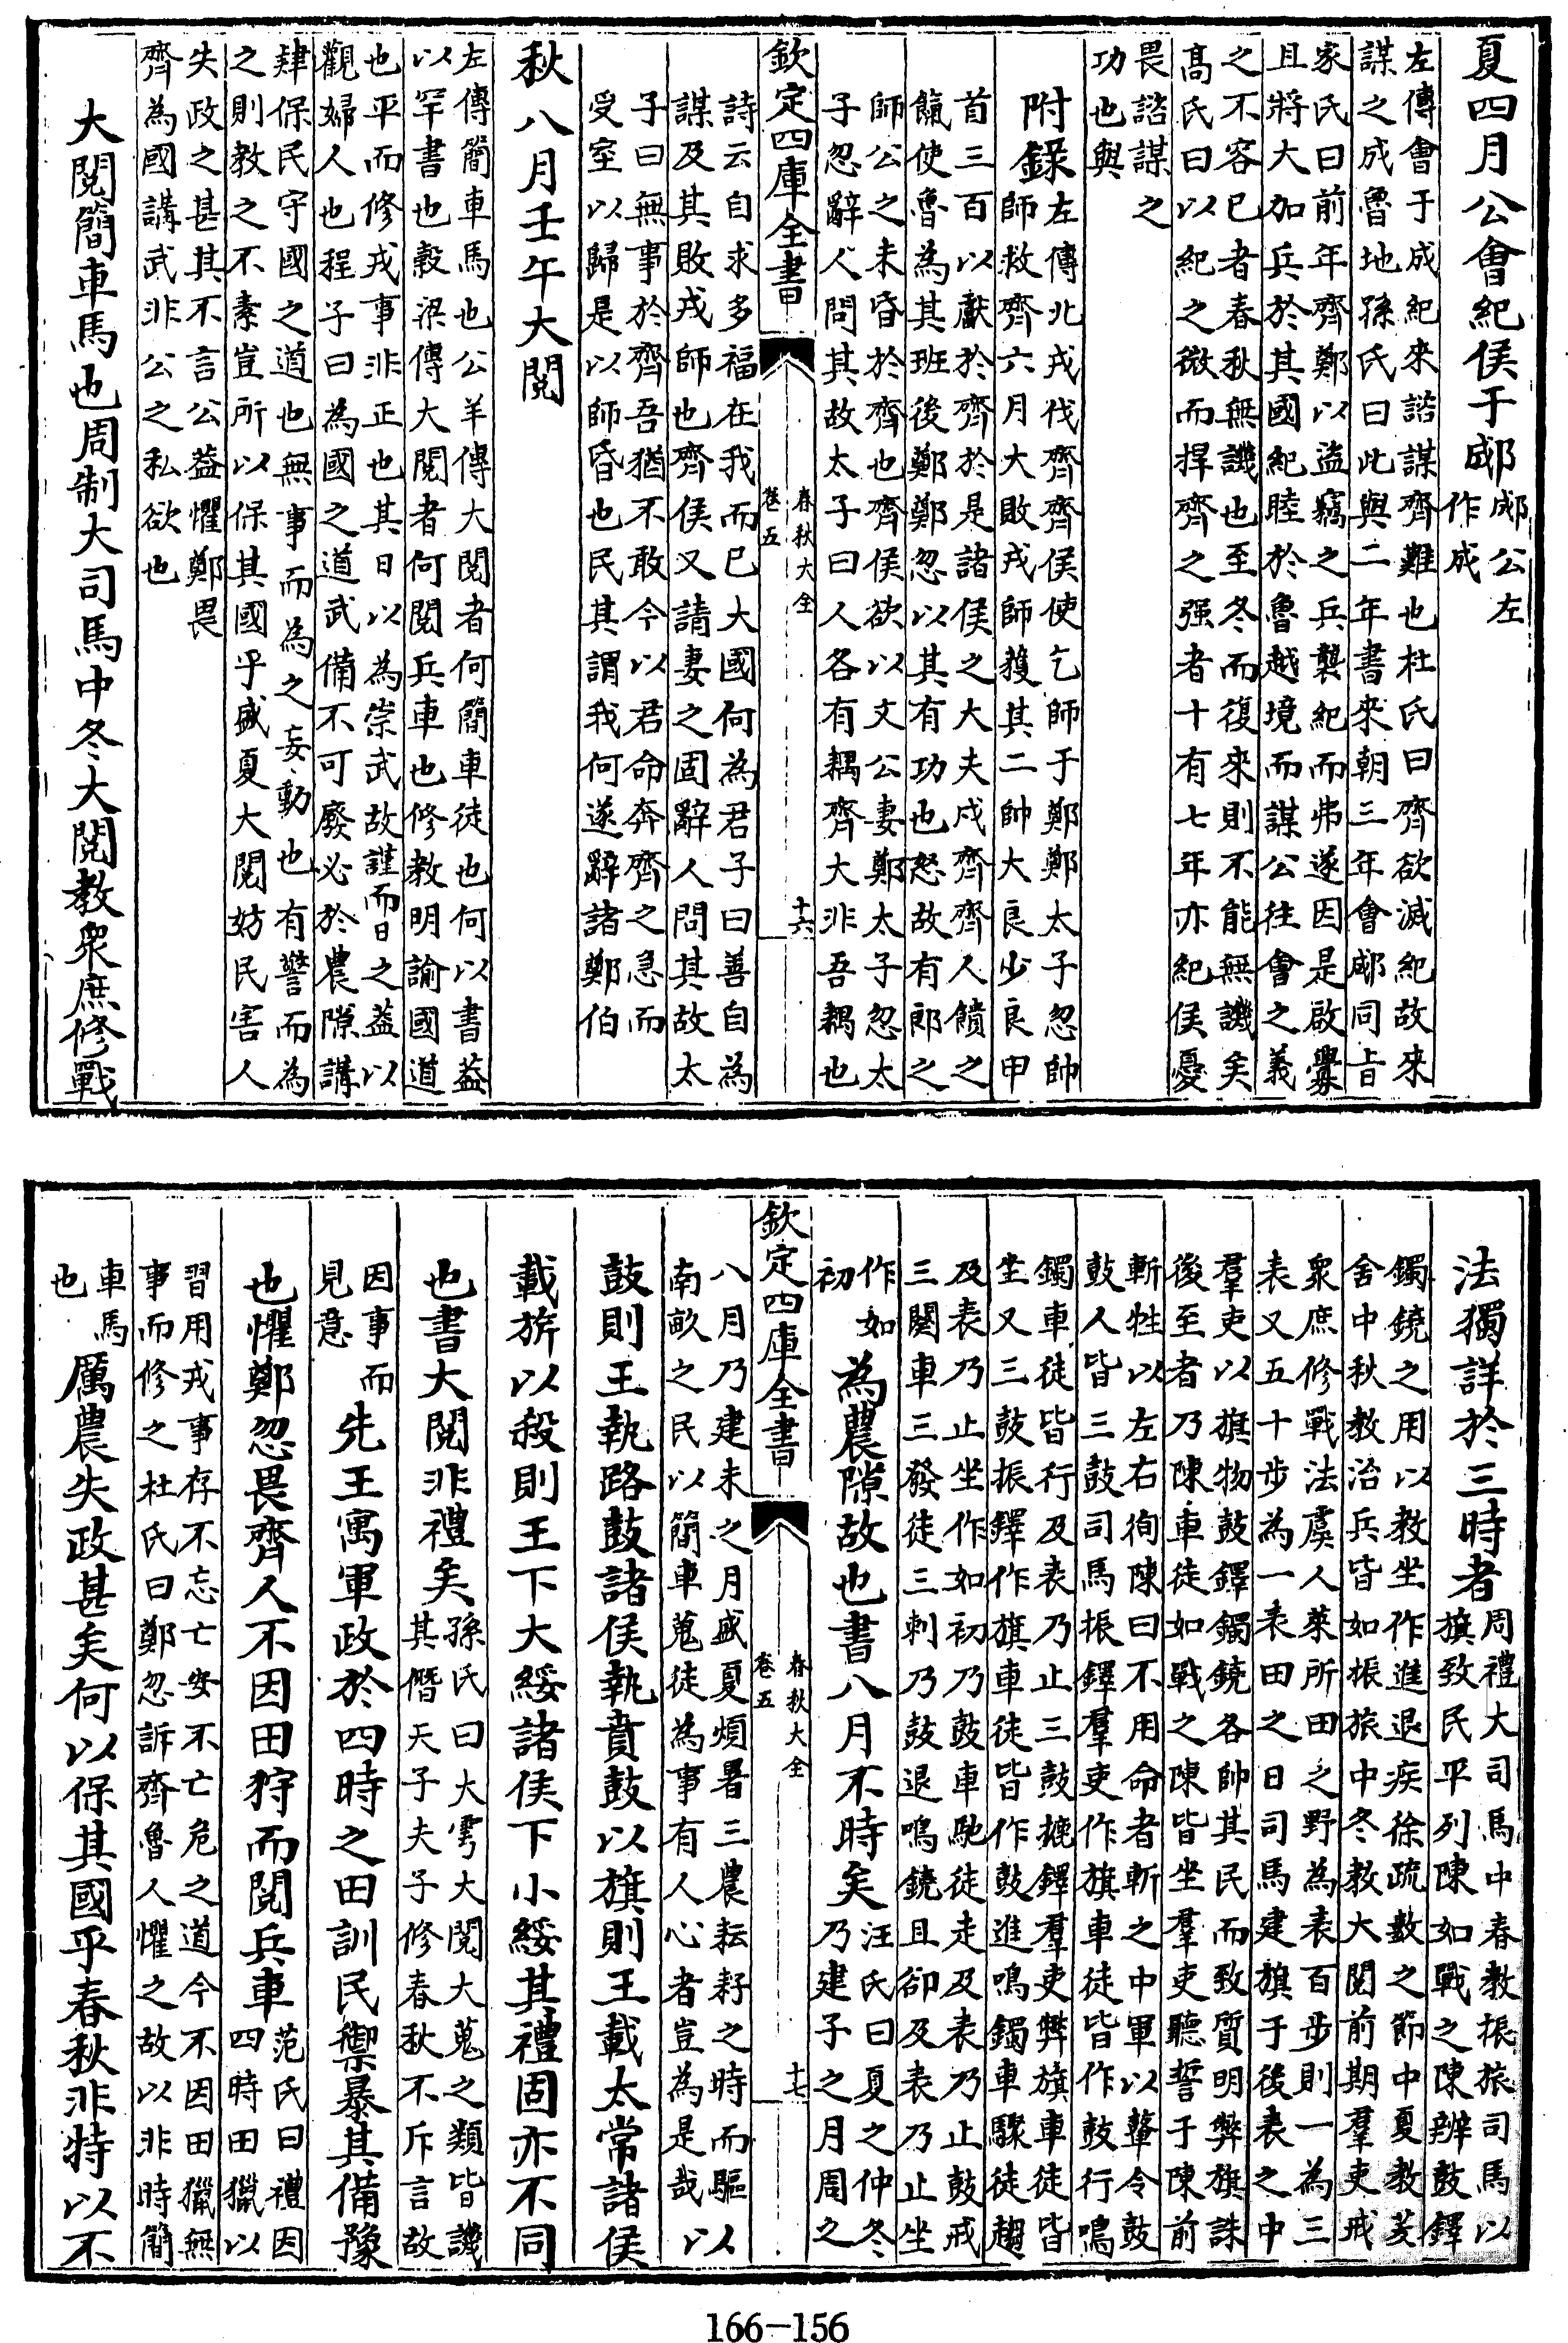 夏四月公會紀侯于郕郕公左
作成
左傳會于成紀來諮謀齊難也杜氏曰齊欲滅紀故來
謀之成魯地孫氏曰此與二年書來朝三年會郕同㫖
家氏曰前年齊鄭以盜竊之兵襲紀而弗遂因是啟釁
且將大加兵於其國紀睦於魯越境而謀公往會之義
之不容已者春秋無譏也至冬而復來則不能無譏矣
髙氏曰以紀之微而捍齊之强者十有七年亦紀侯憂
畏諮謀之
功也與
附錄左傳北戎伐齊齊侯使乞師于鄭鄭太子忽帥
師救齊六月大敗戎師獲其二帥大良少良甲
首三百以獻於齊於是諸侯之大夫戍齊齊人饋之
餼使魯為其班後鄭鄭忽以其有功也怒故有郎之
師公之未昏於齊也齊侯欲以文公妻鄭太子忽太
子忽辭人問其故太子曰人各有耦齊大非吾耦也
欽定四庫全書
春秋大全
卷五
十六
詩云自求多福在我而已大國何為君子曰善自為
謀及其敗戎師也齊侯又請妻之固辭人問其故太
子曰無事於齊吾猶不敢今以君命奔齊之急而
受室以歸是以師昏也民其謂我何遂辭諸鄭伯
秋八月壬午大閱
左傳簡車馬也公羊傳大閱者何簡車徒也何以書葢
以罕書也穀梁傳大閱者何閱兵車也修教明諭國道
也平而修戎事非正也其日以為崇武故謹而日之葢以
觀婦人也程子曰為國之道武備不可廢必於農隙講
肄保民守國之道也無事而為之妄動也有警而為
之則教之不素豈所以保其國乎盛夏大閱妨民害人
失政之甚其不言公葢懼鄭畏
齊為國講武非公之私欲也
大閱簡車馬也周制大司馬中冬大閱教衆庶修戰
法獨詳於三時者周禮大司馬中春教振旅司馬以
旗致民平列陳如戰之陳辨鼓鐸
鐲鐃之用以教坐作進退疾徐疏數之節中夏教茇
舍中秋教治兵皆如振旅中冬教大閱前期羣吏戒
衆庶修戰法虞人萊所田之野為表百步則一為三
表又五十步為一表田之日司馬建旗于後表之中
羣吏以旗物鼓鐸鐲鐃各帥其民而致質明弊旗誅
後至者乃陳車徒如戰之陳皆坐羣吏聽誓于陳前
斬牲以左右徇陳曰不用命者斬之中軍以鼙令鼓
鼓人皆三鼓司馬振鐸羣吏作旗車徒皆作鼓行鳴
鐲車徒皆行及表乃止三鼓摝鐸羣吏弊旗車徒皆
坐又三鼓振鐸作旗車徒皆作鼓進鳴鐲車驟徒趨
及表乃止坐作如初乃鼓車馳徒走及表乃止鼓戒
三闋車三發徒三刺乃鼓退鳴鐃且卻及表乃止坐
作如
初
為農隙故也書八月不時矣汪氏曰夏之仲冬
乃建子之月周之
欽定四庫全書
春秋大全
卷五
十七
八月乃建未之月盛夏煩暑三農耘耔之時而驅以
南畝之民以簡車蒐徒為事有人心者豈為是哉
鼓則王執路鼓諸侯執賁鼓以旗則王載太常諸侯
載旂以殺則王下大綏諸侯下小綏其禮固亦不同
也書大閱非禮矣孫氏曰大雩大閱大蒐之類皆譏
其僭天子夫子修春秋不斥言故
因事而
見意
先王寓軍政於四時之田訓民禦暴其備豫
也懼鄭忽畏齊人不因田狩而閱兵車范氏曰禮因
四時田獵以
習用戎事存不忘亡安不亡危之道今不因田獵無
事而修之杜氏曰鄭忽訴齊魯人懼之故以非時簡
車馬
也
厲農失政甚矣何以保其國乎春秋非特以不
166-156